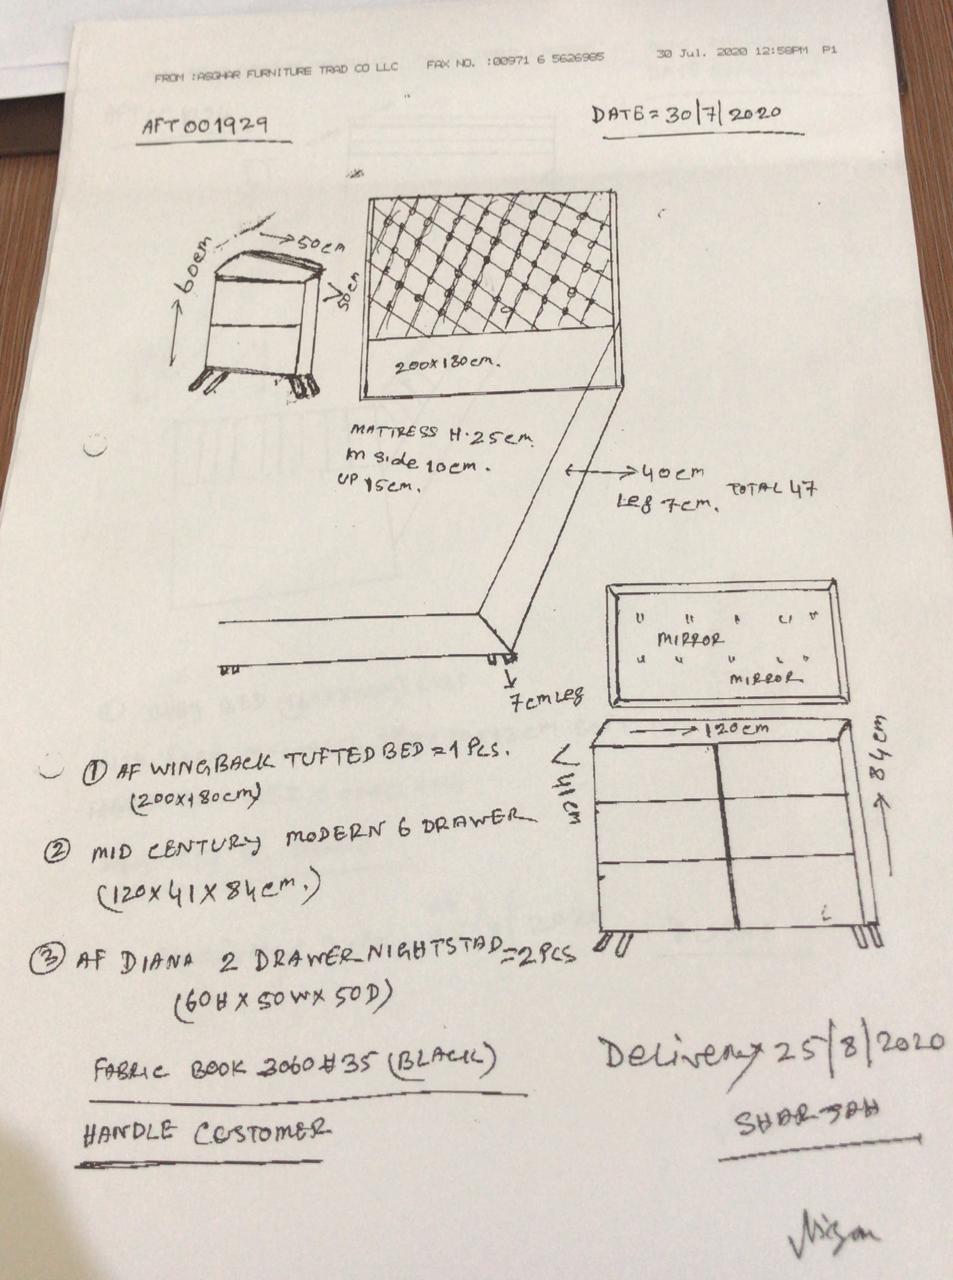 FROM :ASGHAR FURNITURE TRAD CO LLC FAX NO. :00971 6 5626985 30 Jul. 2020 12:58PM P1
AFT 001929
DATE = 30/7/2020
60cm
50cm
50cm
200x180cm.
MATTRESS H.25cm.
in side 10cm.
UP 15cm.
40cm
Leg 7cm. TOTAL 47
7cm Leg
MIRROR
MIRROR
120cm
41cm
84cm
① AF WINGBACK TUFTED BED = 1 PCS.
(200x180cm)
② MID CENTURY MODERN 6 DRAWER
(120X41X84cm.)
③ AF DIANA 2 DRAWER NIGHTSTAD = 2PCS
(60H X 50W X 50D)
FABRIC BOOK 3060#35 (BLACK)
HANDLE CUSTOMER
Delivery 25/8/2020
SHARJAH